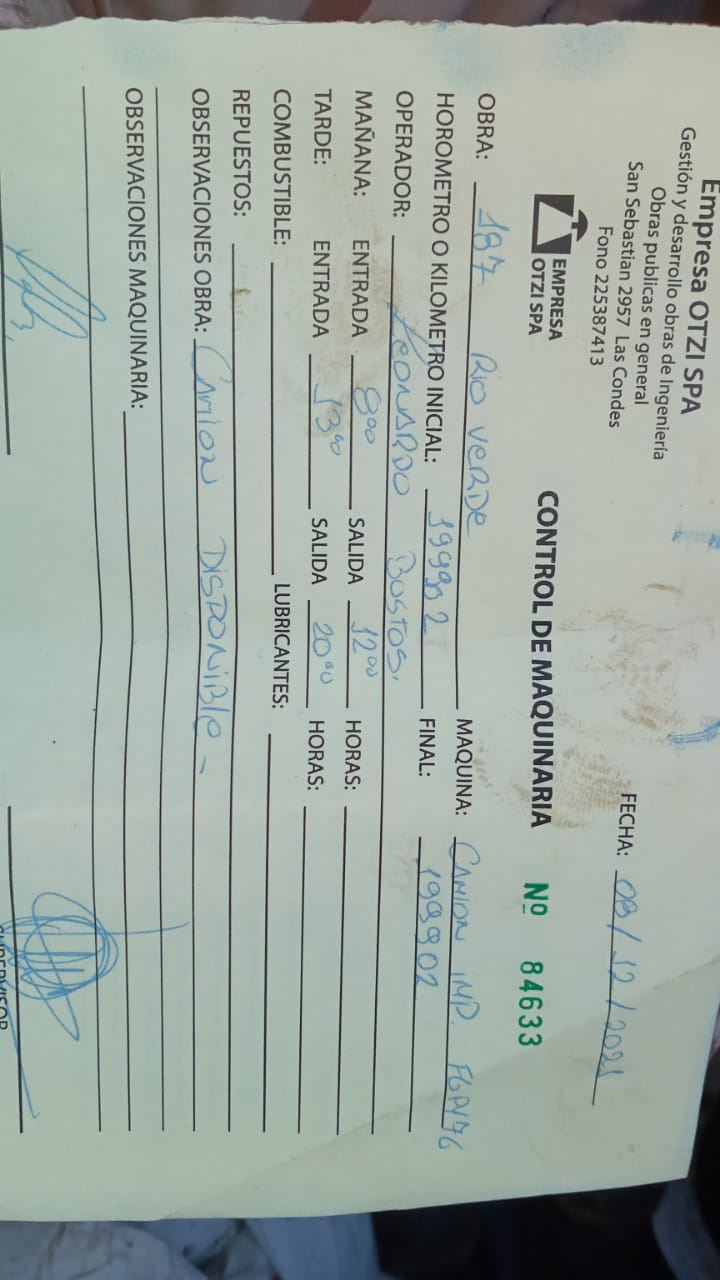 Empresa OTZI SPA
Gestión y desarrollo obras de Ingeniería
Obras publicas en general
San Sebastian 2957 Las Condes
Fono 225387413
FECHA: 03/12/2021
EMPRESA
OTZI SPA
CONTROL DE MAQUINARIA
Nº 84633
OBRA: 187 Rio Verde
MAQUINA: Camion imp.
HOROMETRO O KILOMETRO INICIAL: 199902
FINAL: 199902
OPERADOR: Leonardo Bustos.
MAÑANA: ENTRADA 8⁰⁰ SALIDA 12⁰⁰ HORAS:
TARDE: ENTRADA 13⁰⁰ SALIDA 20⁰⁰ HORAS:
COMBUSTIBLE: LUBRICANTES:
REPUESTOS:
OBSERVACIONES OBRA: Camion Disponible -
OBSERVACIONES MAQUINARIA:
SUPERVISOR